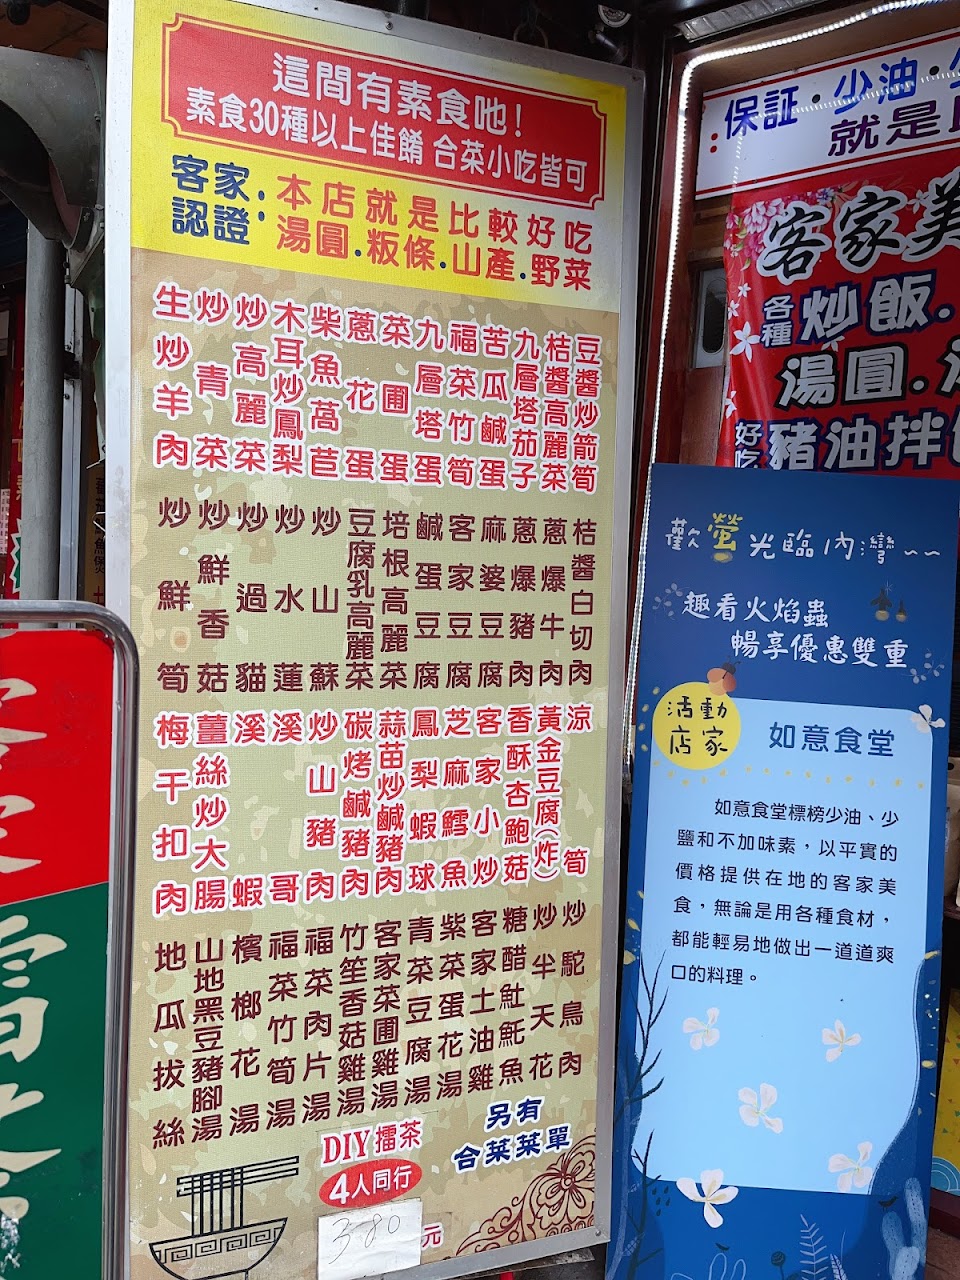 這間有素食吔！
素食30種以上佳餚 合菜小吃皆可
客家認證：
本店就是比較好吃
湯圓．粄條．山產．野菜
生炒羊肉
炒青菜
炒高麗菜
木耳炒鳳梨
柴魚萵苣
蔥花蛋
菜圃蛋
九層塔蛋
福菜竹筍
苦瓜鹹蛋
九層塔茄子
桔醬高麗菜
豆醬炒箭筍
炒鮮筍
炒鮮香菇
炒過貓
炒水蓮
炒山蘇
豆腐乳高麗菜
培根高麗菜
鹹蛋豆腐
客家豆腐
麻婆豆腐
蔥爆豬肉
蔥爆牛肉
桔醬白切肉
梅干扣肉
薑絲炒大腸
溪蝦
溪哥
炒山豬肉
碳烤鹹豬肉
蒜苗炒鹹豬肉
鳳梨蝦球
芝麻鱈魚
客家小炒
香酥杏鮑菇
黃金豆腐(炸)
涼筍
地瓜拔絲
山地黑豆豬腳湯
檳榔花湯
福菜竹筍湯
福菜肉片湯
竹笙香菇雞湯
客家菜圃雞湯
青菜豆腐湯
紫菜蛋花湯
客家土油雞
糖醋魠魚
炒半天花
炒駝鳥肉
DIY擂茶
4人同行
380元
另有
合菜菜單
保証．少油．
就是
客家美
各種炒飯．
湯圓．
好吃豬油拌
歡螢光臨內灣~~
趣看火焰蟲
暢享優惠雙重
活動
店家
如意食堂
如意食堂標榜少油、少
鹽和不加味素，以平實的
價格提供在地的客家美
食，無論是用各種食材，
都能輕易地做出一道道爽
口的料理。